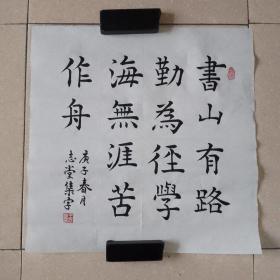 書山有路
勤為徑學
海無涯苦
作舟
庚子春月
志堂集字